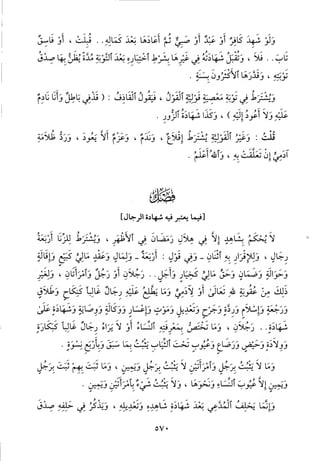 وَلَوْ شَهِدَ كَافِرٌ أَوْ عَبْدٌ أَوْ صَبِيٌّ ثُمَّ أَعَادَهَا بَعْدَ كَمَالِهِ .. قُبِلَتْ ، أَوْ فَاسِقٌ
تَابَ .. فَلاَ ، وَتُقْبَلُ شَهَادَتُهُ فِي غَيْرِهَا بِشَرْطِ اخْتِبَارِهِ بَعْدَ التَّوْبَةِ مُدَّةً يُظَنُّ بِهَا صِدْقُ
تَوْبَتِهِ ، وَقَدَّرَهَا الأَكْثَرُونَ بِسَنَةٍ .
وَيُشْتَرَطُ فِي تَوْبَةِ مَعْصِيَةٍ قَوْلِيَّةٍ الْقَوْلُ ، فَيَقُولُ الْقَاذِفُ : ( قَذْفِي بَاطِلٌ وَأَنَا نَادِمٌ
عَلَيْهِ وَلاَ أَعُودُ إِلَيْهِ ) ، وَكَذَا شَهَادَةُ الزُّورِ .
قُلْتُ : وَغَيْرُ الْقَوْلِيَّةِ يُشْتَرَطُ إِقْلاَعٌ ، وَنَدَمٌ ، وَعَزْمٌ أَلاَّ يَعُودَ ، وَرَدُّ ظُلاَمَةِ
آدَمِيٍّ إِنْ تَعَلَّقَتْ بِهِ ، وَاللهُ أَعْلَمُ .
فَصْلٌ
[فيما يعتبر فيه شهادة الرجال]
لاَ يُحْكَمُ بِشَاهِدٍ إِلاَّ فِي هِلاَلِ رَمَضَانَ فِي الأَظْهَرِ ، وَيُشْتَرَطُ لِلزِّنَا أَرْبَعَةُ
رِجَالٍ ، وَلِلإِقْرَارِ بِهِ اثْنَانِ - وَفِي قَوْلٍ : أَرْبَعَةٌ - وَلِمَالٍ وَعَقْدٍ مَالِيٍّ كَبَيْعٍ وَإِقَالَةٍ
وَحَوَالَةٍ وَضَمَانٍ وَحَقٍّ مَالِيٍّ كَخِيَارٍ وَأَجَلٍ .. رَجُلاَنِ أَوْ رَجُلٌ وَامْرَأَتَانِ ، وَلِغَيْرِ
ذَلِكَ مِنْ عُقُوبَةٍ للهِ تَعَالَىٰ أَوْ لآدَمِيٍّ وَمَا يَطَّلِعُ عَلَيْهِ رِجَالٌ غَالِباً كَنِكَاحٍ وَطَلاَقٍ
وَرَجْعَةٍ وَإِسْلاَمٍ وَرِدَّةٍ وَجَرْحٍ وَتَعْدِيلٍ وَمَوْتٍ وَإِعْسَارٍ وَوَكَالَةٍ وَوِصَايَةٍ وَشَهَادَةٍ عَلَىٰ
شَهَادَةٍ .. رَجُلاَنِ ، وَمَا يَخْتَصُّ بِمَعْرِفَتِهِ النِّسَاءُ أَوْ لاَ يَرَاهُ رِجَالٌ غَالِباً كَبَكَارَةٍ
وَوِلاَدَةٍ وَحَيْضٍ وَرَضَاعٍ وَعُيُوبٍ تَحْتَ الثِّيَابِ يَثْبُتُ بِمَا سَبَقَ وَبِأَرْبَعِ نِسْوَةٍ .
وَمَا لاَ يَثْبُتُ بِرَجُلٍ وَامْرَأَتَيْنِ لاَ يَثْبُتُ بِرَجُلٍ وَيَمِينٍ ، وَمَا يَثْبُتُ بِهِمْ ثَبَتَ بِرَجُلٍ
وَيَمِينٍ إِلاَّ عُيُوبَ النِّسَاءِ وَنَحْوَهَا ، وَلاَ يَثْبُتُ شَيْءٌ بِامْرَأَتَيْنِ وَيَمِينٍ .
وَإِنَّمَا يَحْلِفُ الْمُدَّعِي بَعْدَ شَهَادَةِ شَاهِدِهِ وَتَعْدِيلِهِ ، وَيَذْكُرُ فِي حَلِفِهِ صِدْقَ
٥٧٠